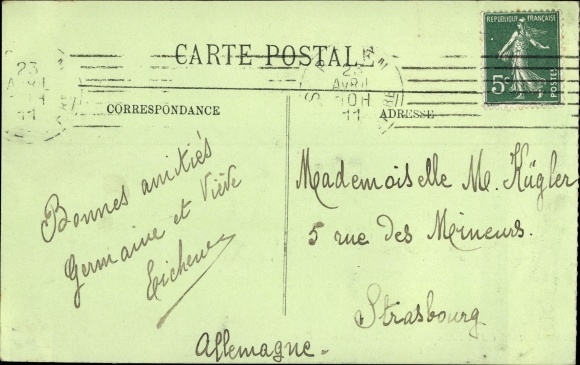 CARTE POSTALE
REPUBLIQUE FRANÇAISE
5c
POSTES
23
AVRIL
11
23
AVRIL
10H
11
CORRESPONDANCE
ADRESSE
Bonnes amitiés
Germaine et Viève
Mademoiselle M. Kügler
5 rue des Mineurs.
Strasbourg
Allemagne.